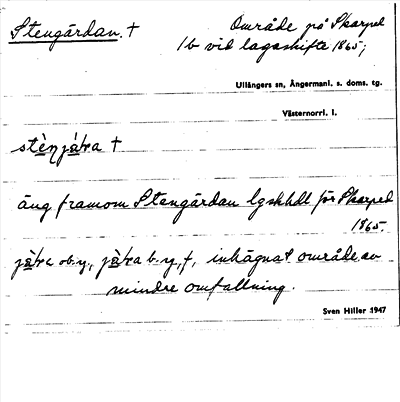 Stengärdan. †
Område på Skarped
1b vid lagaskifte 1865;
Ullångers sn, Ångermanl. s. doms. tg.
Västernorrl. l.
stènjàtra †
äng framom Stengärdan lgskhdl för Skarped
1865.
jàtra ob. y., jàtra b. y., f, inhägnat område av
mindre omfattning.
Sven Hiller 1947